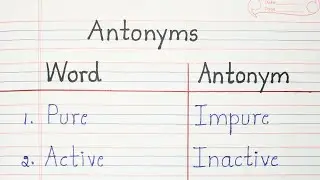 Antonyms
Word Antonym
1. Pure Impure
2. Active Inactive